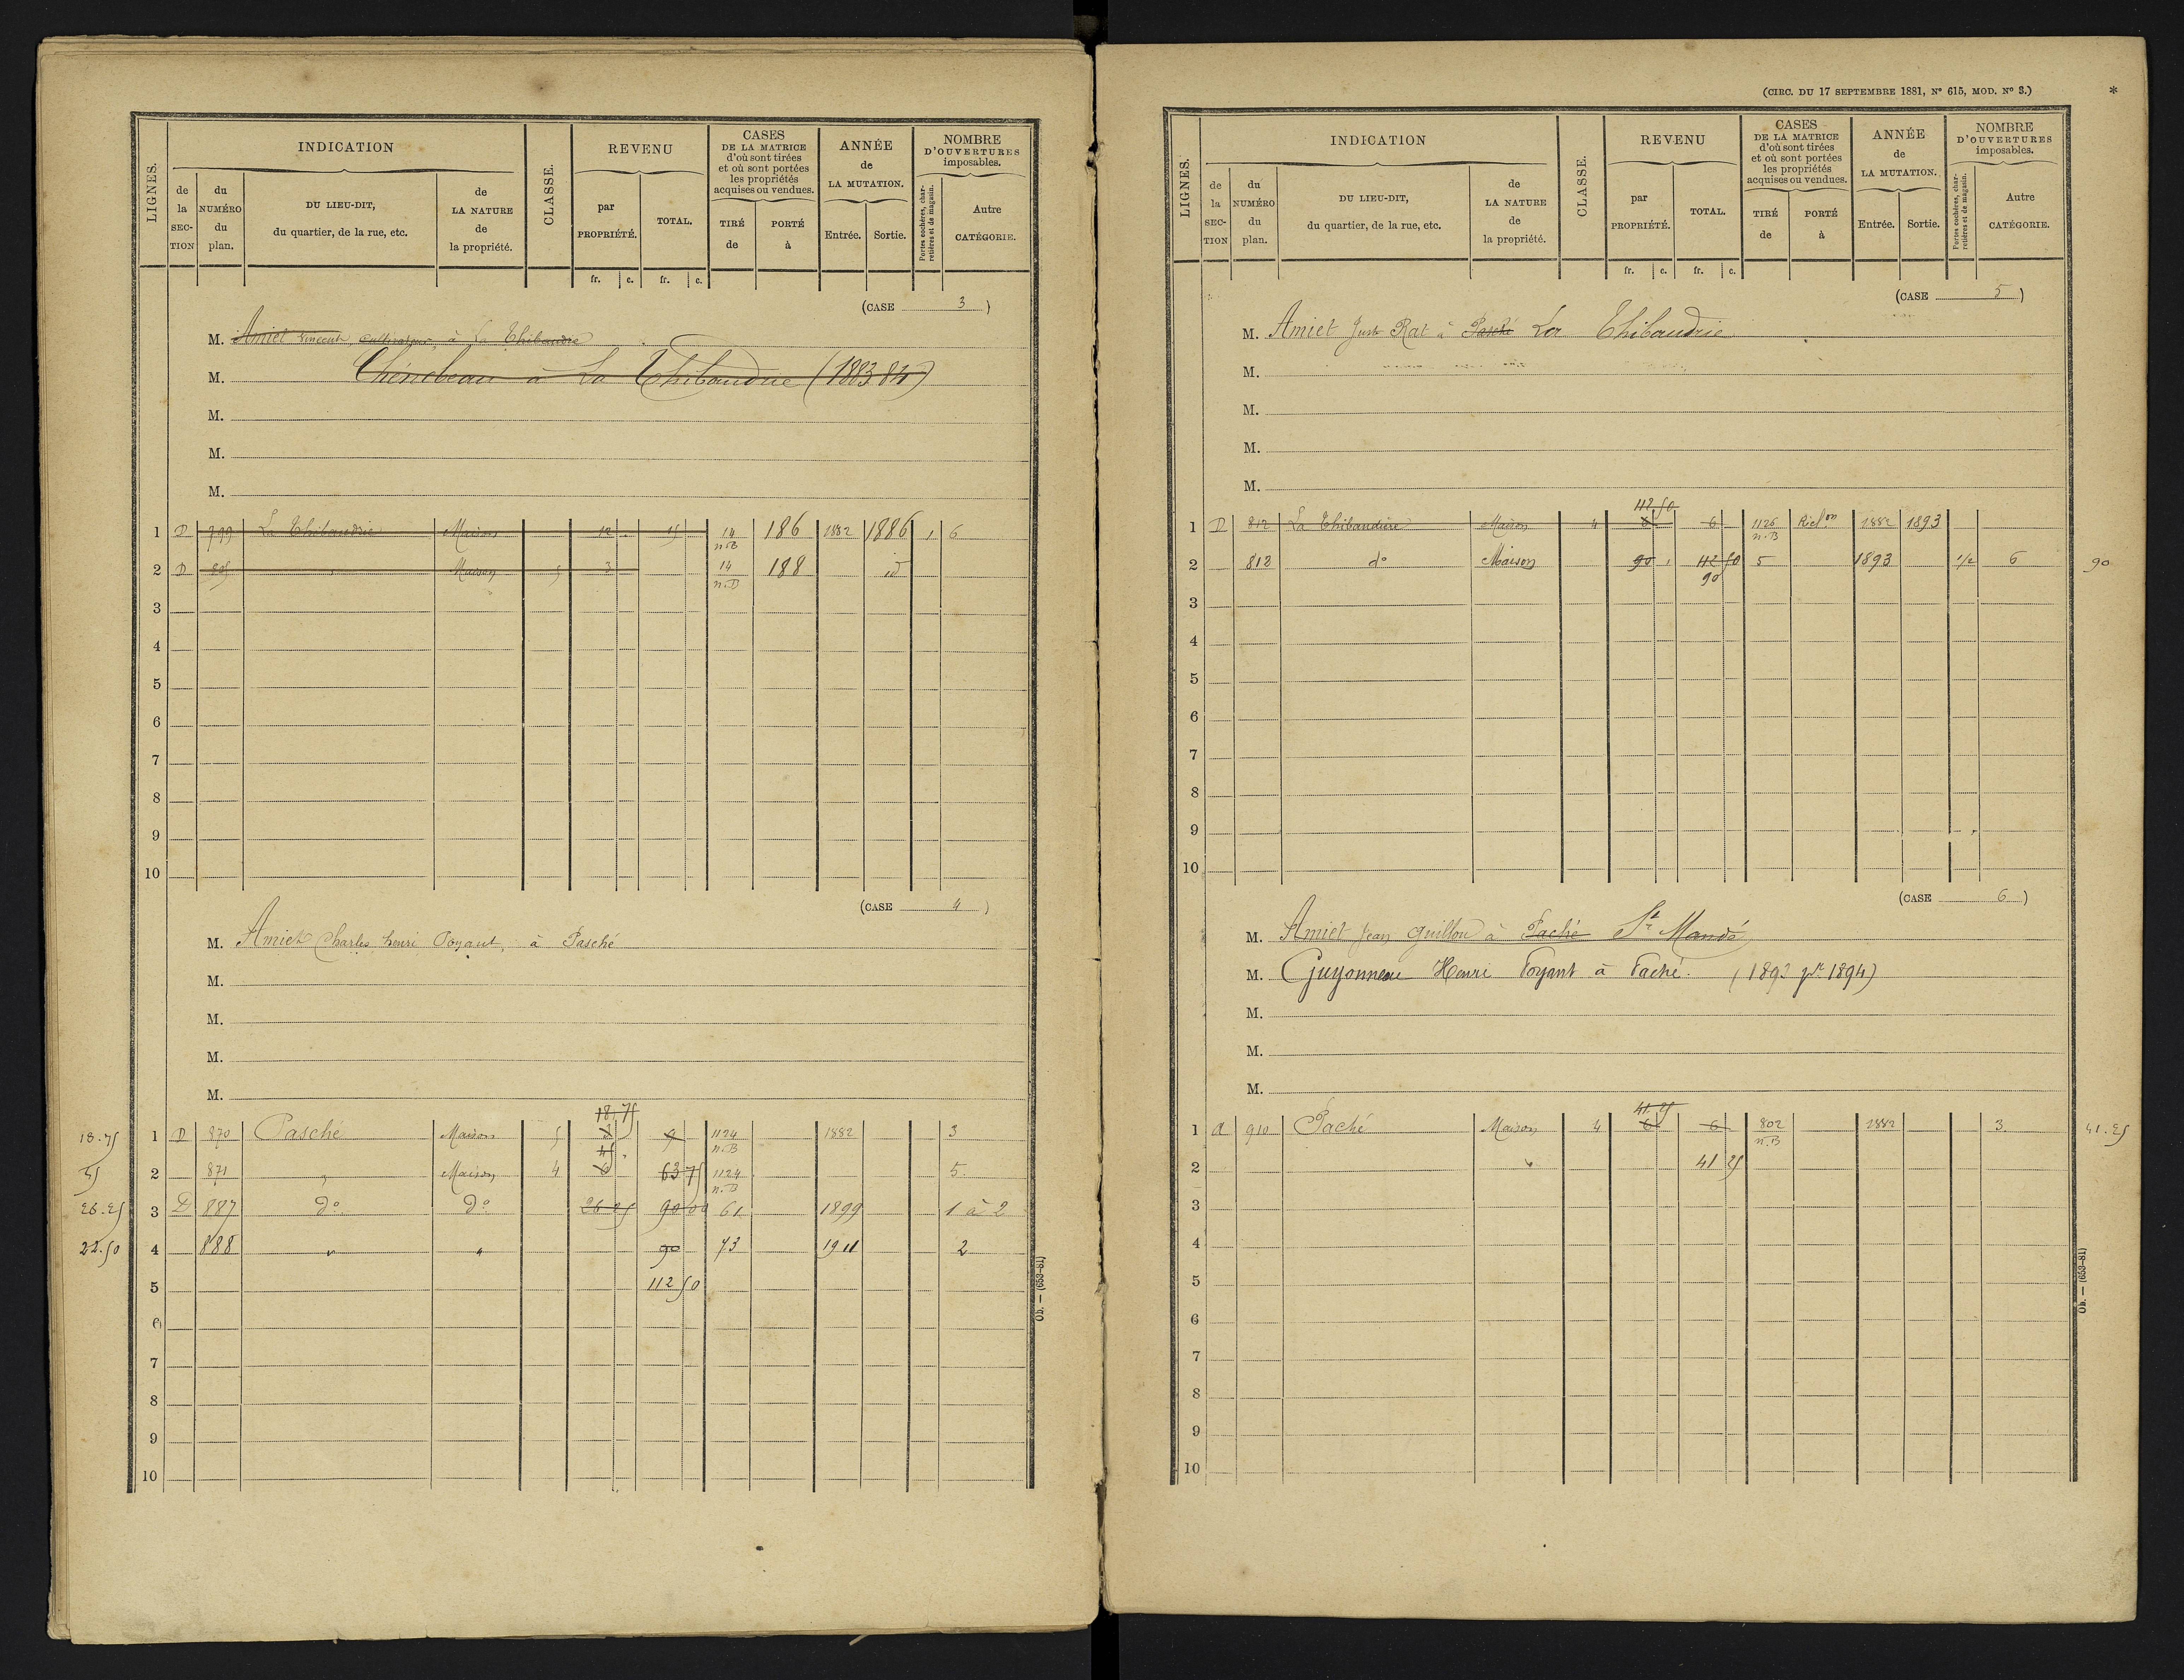 LIGNES.
INDICATION
de la SECTION
du NUMÉRO du plan.
DU LIEU-DIT, du quartier, de la rue, etc.
de LA NATURE de la propriété.
CLASSE.
REVENU
par PROPRIÉTÉ.
TOTAL.
fr. c. fr. c.
CASES DE LA MATRICE d'où sont tirées et où sont portées les propriétés acquises ou vendues.
TIRÉ de
PORTÉ à
ANNÉE de LA MUTATION.
Entrée. Sortie.
NOMBRE D'OUVERTURES imposables.
Portes cochères, charretières et de magasin.
Autre CATÉGORIE.
(CASE 3)
M. Amiet Vincent, cultivateur, à La Thibaudrie
M. Chénebeau à La Thibaudrie (1883.84)
M.
M.
M.
1 D 799 La Thibaudrie Maison 12 15 14 n.B 186 1882 1886 1 6
2 D 805 " Maison 5 3 14 n.B 188 id
3
4
5
6
7
8
9
10
(CASE 4)
M. Amiet Charles henri Poyaut, à Pasché
M.
M.
M.
M.
18.75
18.75 1 D 870 Pasché Maison 5 3 9 1124 n.B 1882 3
45 2 871 " Maison 4 6 45 63 75 1124 n.B 5
26.25 3 D 887 do do 26 25 90 00 61 1899 1 à 2
22.50 4 888 " " 90 73 1911 2
5 112 50
6
7
8
9
10
Ob. — (653-81)
(CIRC. DU 17 SEPTEMBRE 1881, N° 615, MOD. N° 3.)
*
LIGNES.
INDICATION
de la SECTION
du NUMÉRO du plan.
DU LIEU-DIT, du quartier, de la rue, etc.
de LA NATURE de la propriété.
CLASSE.
REVENU
par PROPRIÉTÉ.
TOTAL.
fr. c. fr. c.
CASES DE LA MATRICE d'où sont tirées et où sont portées les propriétés acquises ou vendues.
TIRÉ de
PORTÉ à
ANNÉE de LA MUTATION.
Entrée. Sortie.
NOMBRE D'OUVERTURES imposables.
Portes cochères, charretières et de magasin.
Autre CATÉGORIE.
(CASE 5)
M. Amiet Just Rat à Pasché La Thibaudrie
M.
M.
M.
M.
112 50
1 D 812 La Thibaudière Maison 4 6 6 1126 n.B 1882 1893
2 812 do Maison 90 112 50 5 1893 1/2 6 90
90
3
4
5
6
7
8
9
10
(CASE 6)
M. Amiet Jean Guillou à Paché St Mandé
M. Guyonneau Henri Poyant à Paché. (1893 pr 1894)
M.
M.
M.
41.25
1 a 910 Paché Maison 4 6 6 802 n.B 1882 3 41.25
2 41 25
3
4
5
6
7
8
9
10
Ob. — (653-81)